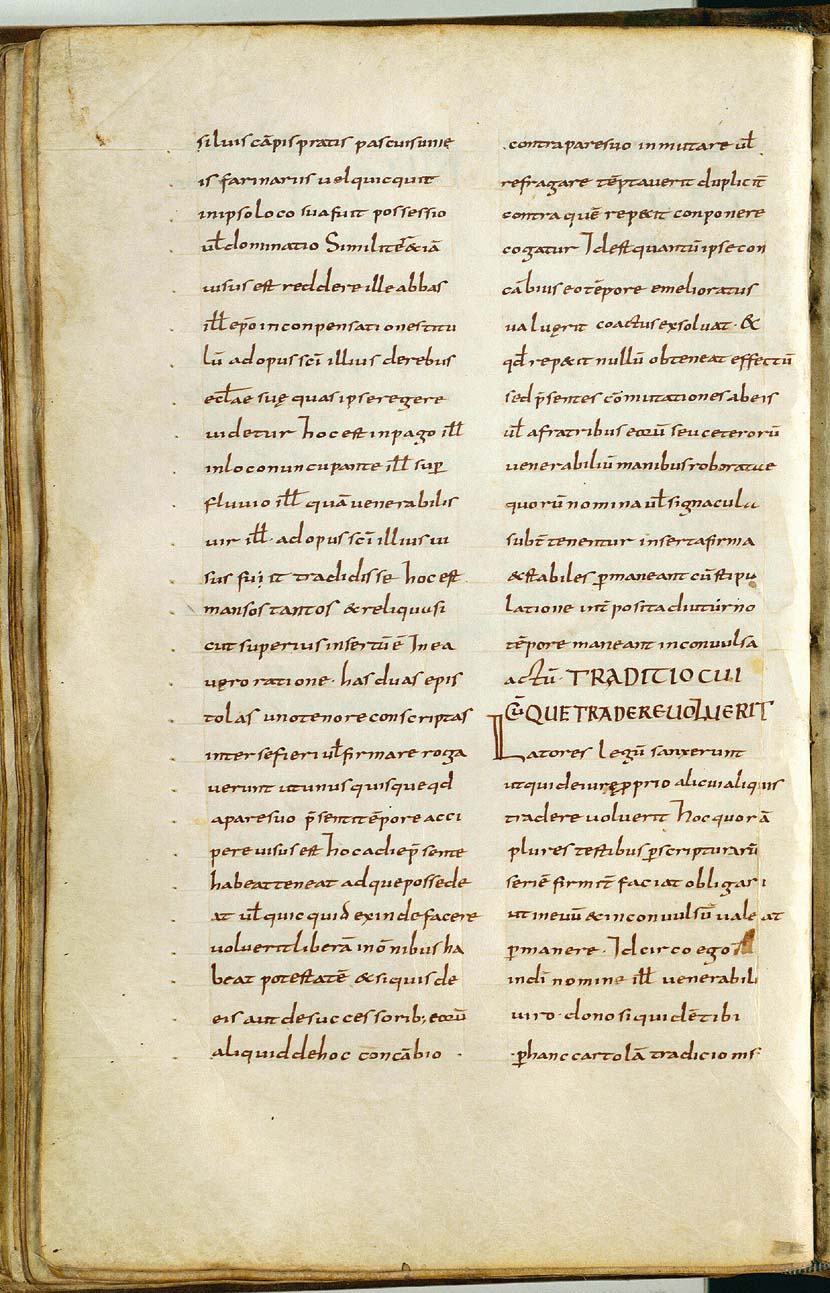 siluis cāpis pratis pascuis uine
is farinariis uel quicquit
in ipso loco sua fuit possessio
ul̄ dominatio Similiter & iā
uisus est reddere ille abbas
ill̄ ep̄o in conpensatione stitu
lū ad opus sc̄i illius de rebus
eccl̄ae suę quas ipse regere
uidetur hoc est in pago ill̄
in loco nuncupante ill̄ sup̄
fluuio ill̄ quā venerabilis
uir ill̄ · ad opus sc̄i illius ui
sus fuit tradidisse hoc est
mansos tantos & reliqua si
cut superius insertū ē In ea
uero ratione · has duas epis
tolas uno tenore conscriptas
inter se fieri ul̄ firmare roga
uerunt ut unusquisque qd
a pare suo p̄senti tēpore acci
pere uisus est hoc ad ie p̄sente
habeat teneat adque possede
at ul̄ quicquid exinde facere
voluerit liberā in om̄ibus ha
beat potestatē & si quis de
eis aut de successorib; eorū
aliquid de hoc concābio ·
contra pare suo inmutare ul̄
refragare tēptauerit duplic̄
contra quē repetit conponere
cogatur Id est quantū ipse con
cābius eo tēpore emelioratus
ualuerit coactus exsoluat · &
qd̄ repetit nullū obteneat effectū
sed p̄sentes cōmutationes ab eis
ul̄ a fratribus eorū seu ceterorū
venerabiliū manibus roborate
quorū nomina ul̄ signacula
subt̄ tenentur inserta firma
& stabiles p̄maneant cū stipu
latione int̄posita diuturno
tēpore maneant inconuulsa
actū · TRADITIO CUI
CŪQUE TRADERE UOLUERIT
Latores legū sanxerunt
ut qui de iure p̄prio alicui aliquis
tradere uoluerit hoc quorā
plures testibus p̄ scripturarū
seriē firmit̄ faciat obligari
ut in euū & inconuulsū ualeat
p̄manere · Idcirco ego ill̄
in dī nomine ill̄ venerabili
uiro · dono siquidē tibi
p̄ hanc cartolā tradicionis